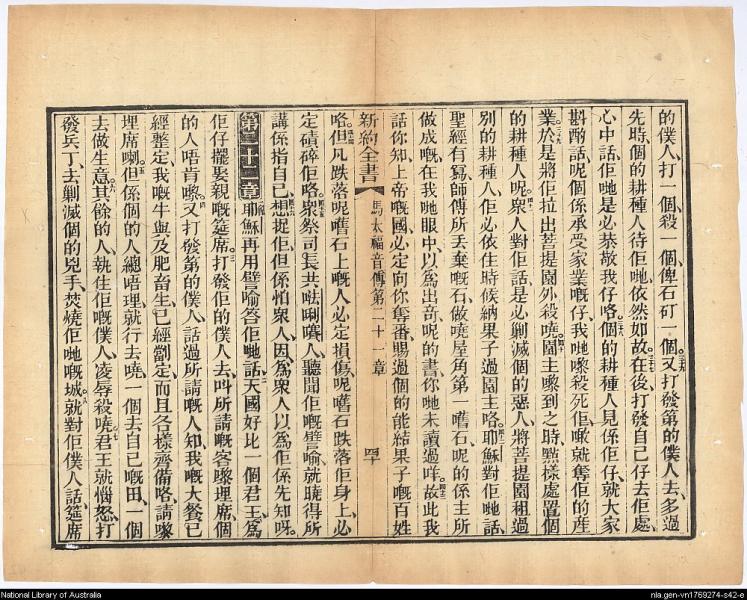 的僕人、打一個、殺一個、俾石矴一個。又打發第的僕人去、多過
先時、個的耕種人待佢哋、依然如故。在後、打發自己仔去佢處、
心中話、佢哋是必恭敬我仔咯。個的耕種人見係佢仔、就大家
斟酌話、呢個係承受家業嘅仔、我哋嚟殺死佢、噉就奪佢的產
業。於是將佢拉出菩提園外殺嘵。園主嚟到之時、點樣處置個
的耕種人呢。眾人對佢話、是必剿滅個的惡人、將菩提園租過
別的耕種人、佢必依住時候納果子過園主咯。耶穌對佢哋話、
聖經有寫、師傅所丟棄嘅石、做嘵屋角第一嚿石、呢的係主所
做成嘅、在我哋眼中以為出奇、呢的書、你哋未讀過咩。故此我
話你知、上帝嘅國、必定向你奪番、賜過個的能結果子嘅百姓
新約全書 馬太福音傳第二十一章 四十
咯。但凡跌落呢嚿石上嘅人必定損傷、呢嚿石跌落佢身上、必
定磧碎佢咯。眾祭司長共𠵽唎賽人、聽聞佢嘅譬喻、就曉得所
講係指自己、想捉佢、但係怕眾人、因為眾人以為佢係先知呀。
第二十二章 耶穌再用譬喻答佢哋話、天國好比一個君王、為
佢仔擺娶親嘅筵席。打發佢的僕人去、叫所請嘅客嚟埋席、個
的人唔肯嚟。又打發第的僕人、話過所請嘅人知、我嘅大餐已
經整定、我嘅牛與及肥畜生、已經劏定、而且各樣齊備咯、請嚟
埋席喇。但係個的人總唔理、就行去嘵、一個去自己嘅田、一個
去做生意。其餘的人、執住佢嘅僕人、凌辱殺嘵。君王就惱怒、打
發兵丁、去剿滅個的兇手、焚燒佢哋嘅城。就對佢僕人話、筵席
National Library of Australia
nla.gen-vn1769274-s42-e